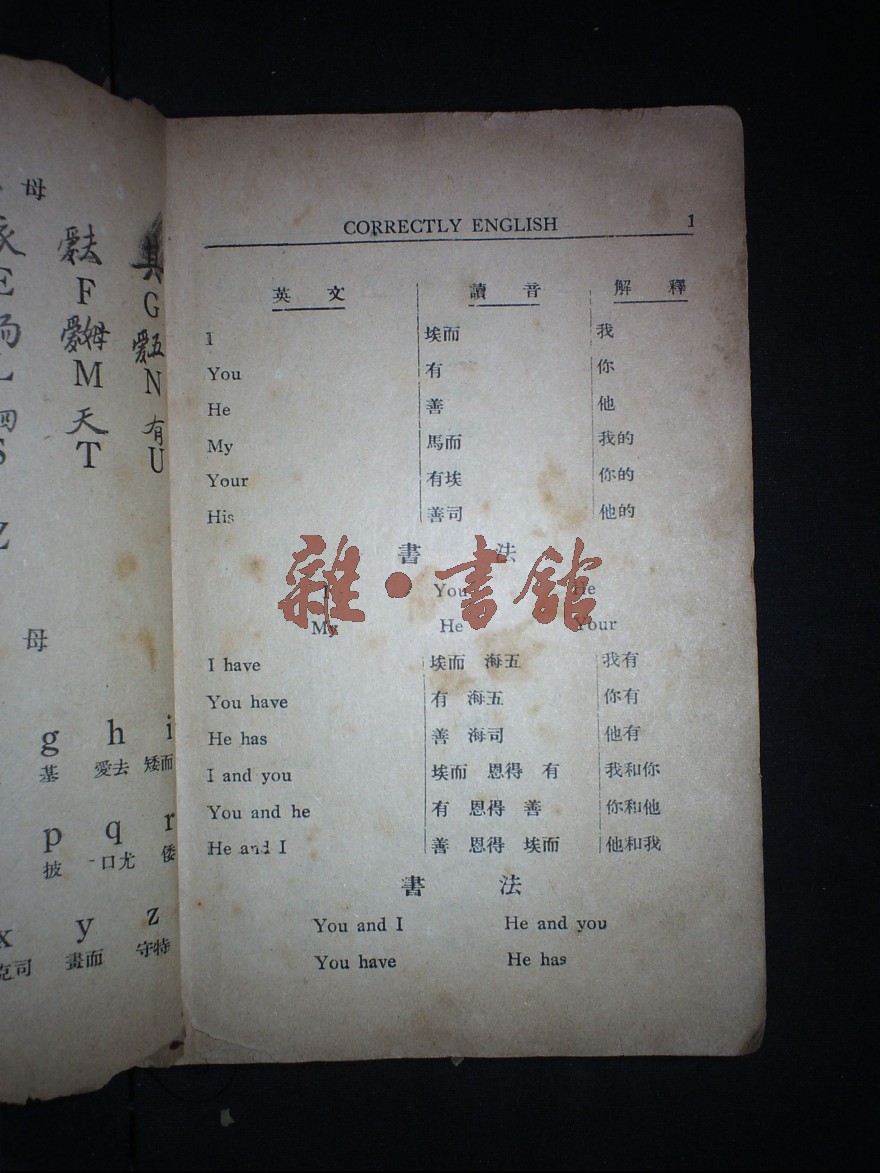 母
爱去
F G
M N
天 有
T U
Z
母
g h i
基 愛去 矮而
p q r
披 口尤 倭
x y z
克司 畫而 守特
CORRECTLY ENGLISH 1
英文 讀音 解釋
I 埃而 我
You 有 你
He 善 他
My 馬而 我的
Your 有埃 你的
His 善司 他的
書法
I You He
My He Your
雜·書館
I have 埃而 海五 我有
You have 有 海五 你有
He has 善 海司 他有
I and you 埃而 恩得 有 我和你
You and he 有 恩得 善 你和他
He and I 善 恩得 埃而 他和我
書法
You and I He and you
You have He has